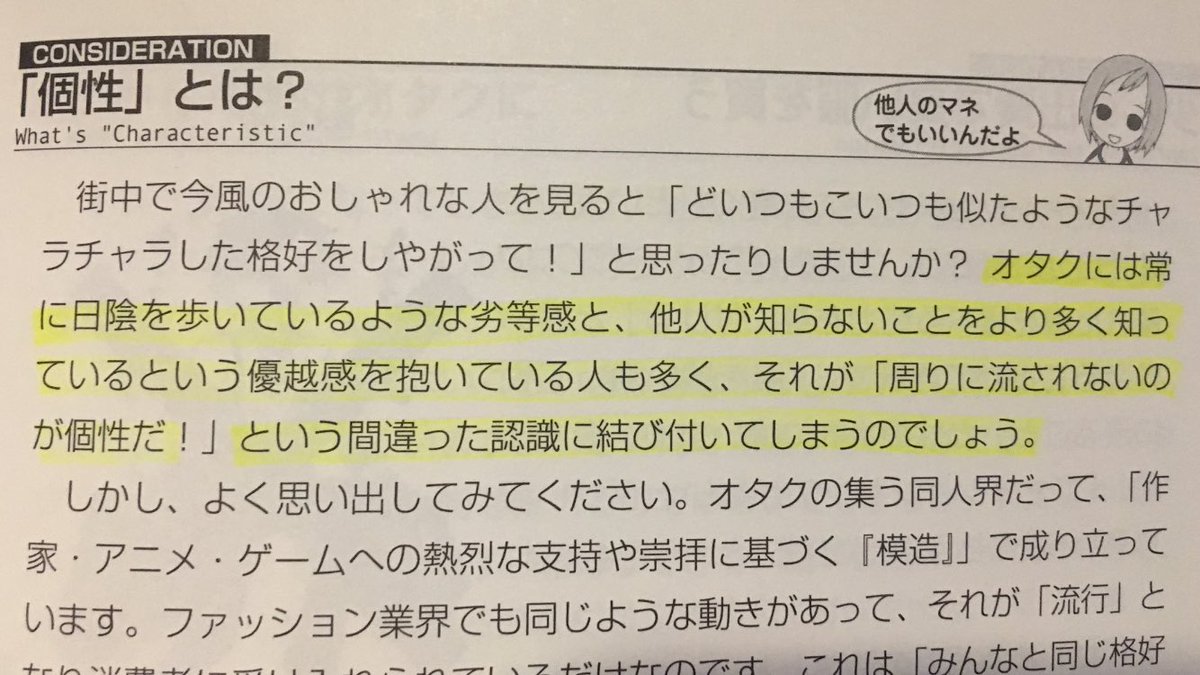 CONSIDERATION
「個性」とは?
What's "Characteristic"
他人のマネ
でもいいんだよ
街中で今風のおしゃれな人を見ると「どいつもこいつも似たようなチャ
ラチャラした格好をしやがって!」と思ったりしませんか? オタクには常
に日陰を歩いているような劣等感と、他人が知らないことをより多く知っ
ているという優越感を抱いている人も多く、それが「周りに流されないの
が個性だ!」という間違った認識に結び付いてしまうのでしょう。
しかし、よく思い出してみてください。オタクの集う同人界だって、「作
家・アニメ・ゲームへの熱烈な支持や崇拝に基づく『模造』」で成り立って
います。ファッション業界でも同じような動きがあって、それが「流行」と
なり消費者に受け入れられているだけなのです。これは「みんなと同じ格好